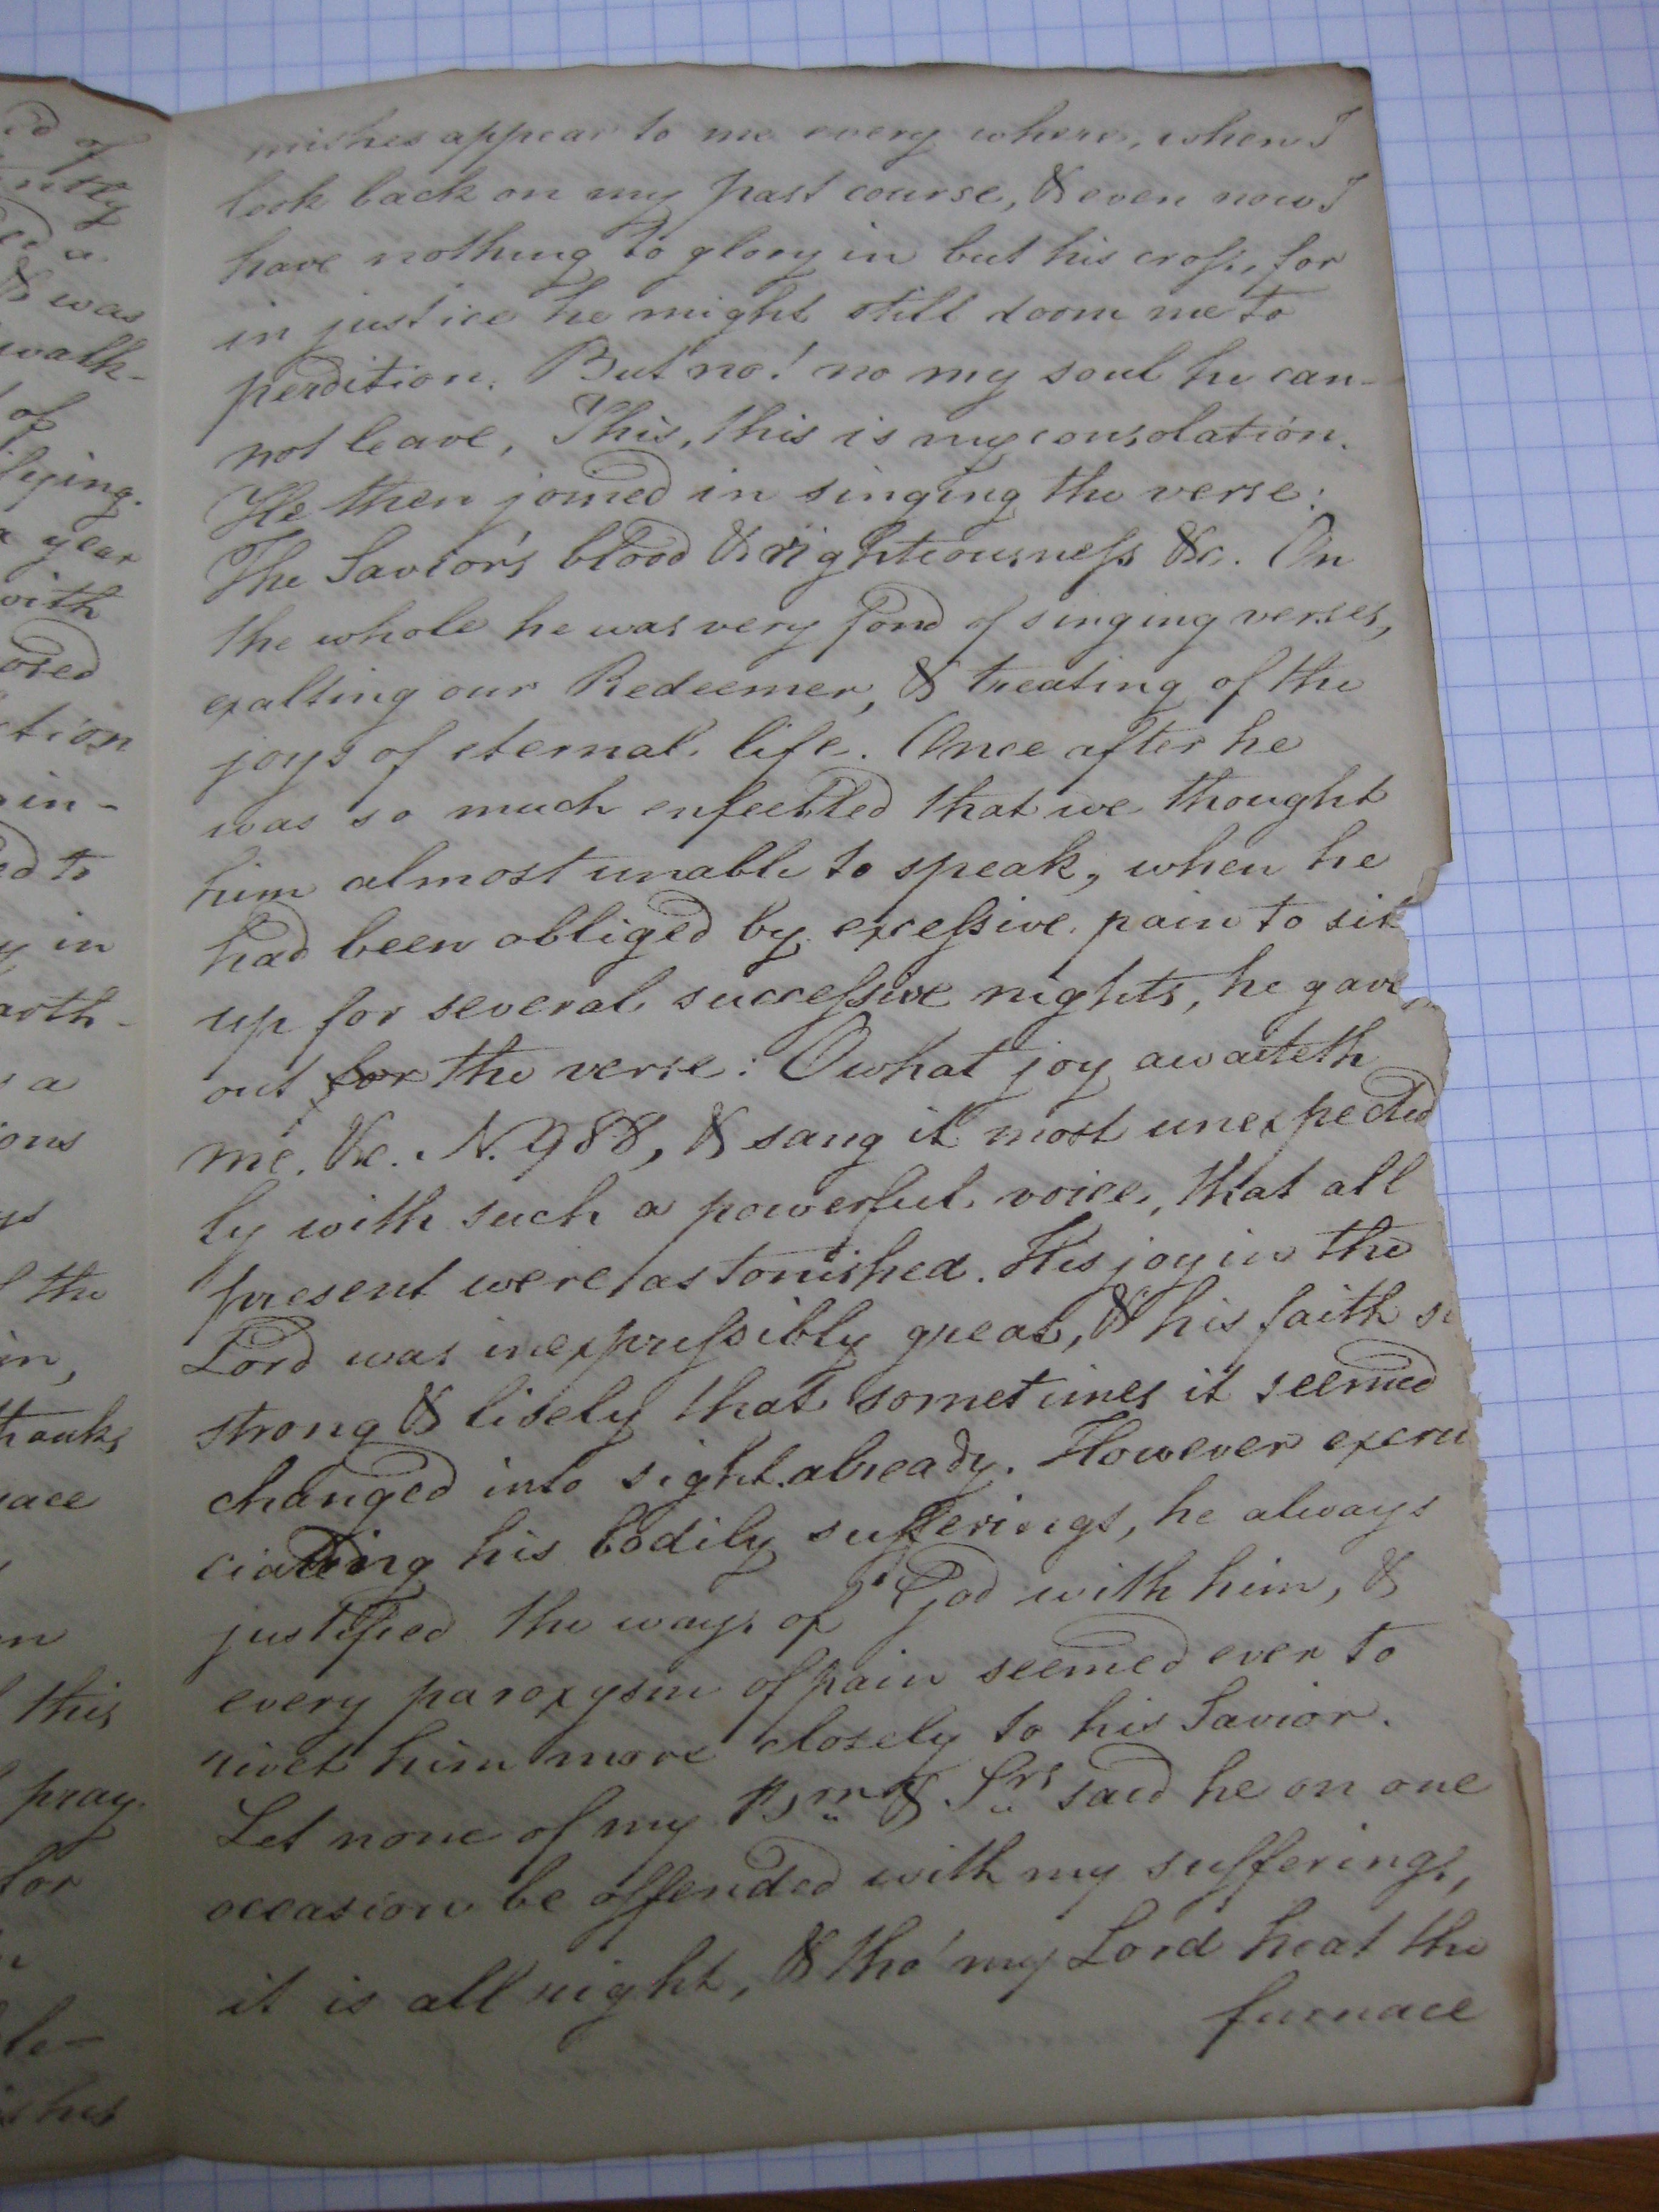 id of
& was
walk-
of
fying.
year
with
osed
ction
in-
ed to
in
arth-
a
ons
the
in,
thanks
this
pray.
for
ishes
mishes appear to me every where, when I
look back on my past course, & even now I
have nothing to glory in but his cross, for
in justice he might still doom me to
perdition. But no! no my soul he can-
not leave, This, this is my consolation.
He then joined in singing the verse:
The Savior's blood & righteousness &c. On
the whole he was very fond of singing verses,
exalting our Redeemer, & treating of the
joys of eternal life. Once after he
was so much enfeebled that we thought
him almost unable to speak, when he
had been obliged by excessive pain to sit
up for several successive nights, he gave
out for the verse: O what joy awaiteth
me. &c. N. 988, & sang it most unexpected
ly with such a powerful voice, that all
present were astonished. His joy in the
Lord was inexpressibly great, & his faith s
strong & lively that sometimes it seemed
changed into sight already. However excru
ciating his bodily sufferings, he always
justified the ways of God with him, &
every paroxysm of pain seemed ever to
rivet him more closely to his Savior.
Let none of my Brn & Srs said he on one
occasion be offended with my sufferings,
it is all right, & tho' my Lord heat the
furnace